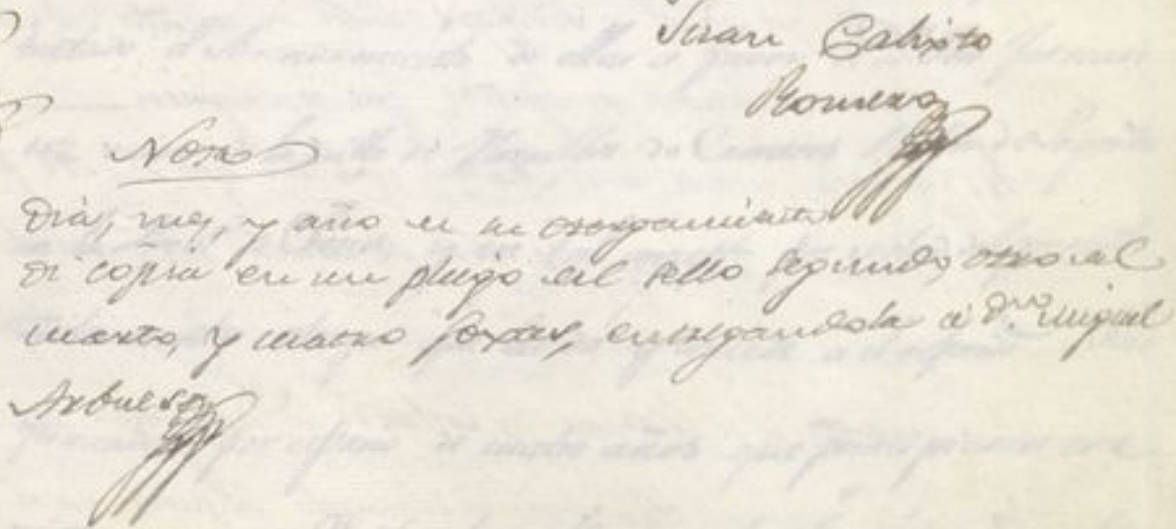 Juan Calixto
Romero
Nota
Dia, mes, y año de su otorgamiento
di copia en un pliego del sello segundo, otro del
cuarto, y cuatro foxas, entregandola á Dn. Miguel
Arbues